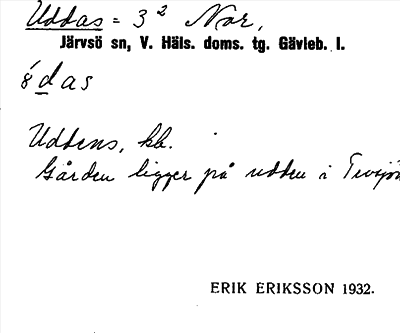 Uddas = 3² Nor,
Järvsö sn, V. Häls. doms. tg. Gävleb. l.
ddas
Uddens, kb.
Gården ligger på udden i Tevsjön
ERIK ERIKSSON 1932.